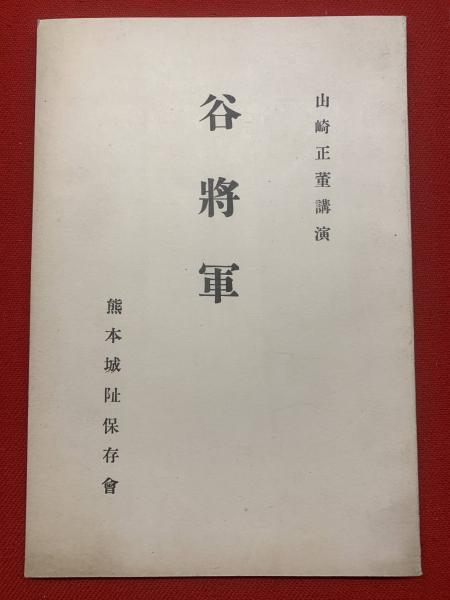 山崎正董講演
谷將軍
熊本城阯保存會